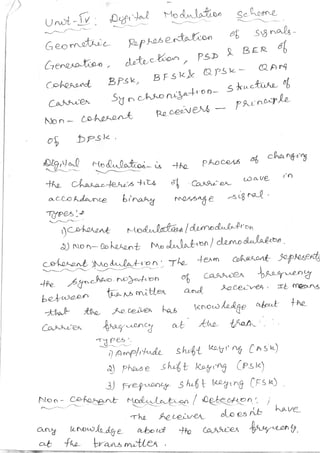 Unit-IV: Digital Modulation Scheme
Geometric Representation of Signals-
Generation, detection, PSD & BER of
Coherent BPSK, BFSK & QPSK - QAM
Carrier Synchronization- Structure of
Non-coherent Receivers - principle
of DPSK.
Digital Modulation- is the process of changing
the characteristics of carrier wave in
accordance binary message signal.
Types:-
1) Coherent Modulation/demodulation
2) Non-Coherent Modulation/demodulation.
Coherent Modulation: The term coherent represents
the synchronization of carrier frequency
between transmitter and receiver. It means
that the receiver has knowledge about the
carrier frequency at the
Types:
1) Amplitude shift keying (ASK)
2) phase shift keying (PSK)
3) Frequency shift keying (FSK).
Non-Coherent Modulation/Detection:
The receiver doesn't have
any knowledge about the carrier frequency
at the transmitter.